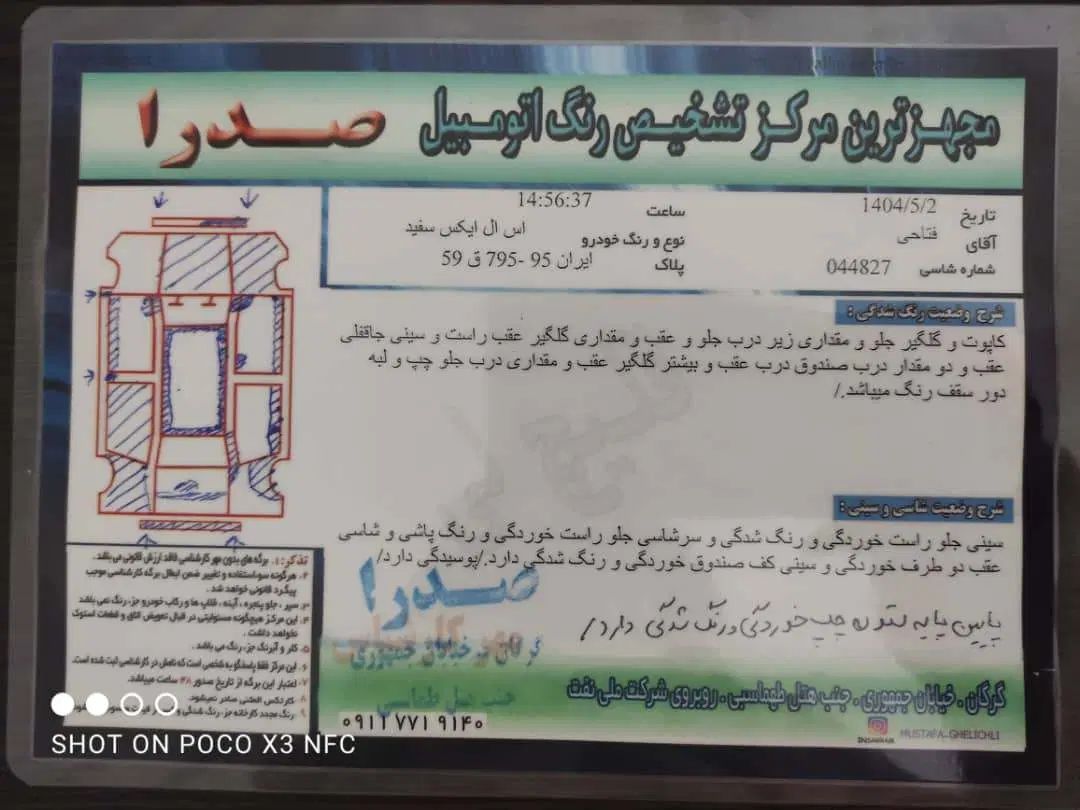 مجهزترین مرکز تشخیص رنگ اتومبیل
صدرا
تاریخ 1404/5/2
ساعت 14:56:37
آقای فتاحی
نوع و رنگ خودرو اس ال ایکس سفید
شماره شاسی 044827
پلاک ایران 95 -795 ق 59
شرح وضعیت رنگ شدگی :
کاپوت و گلگیر جلو و مقداری زیر درب جلو و عقب و مقداری گلگیر عقب راست و سینی جاقفلی
عقب و دو مقدار درب صندوق درب عقب و بیشتر گلگیر عقب و مقداری درب جلو چپ و لبه
دور سقف رنگ میباشد./
شرح وضعیت شاسی و سینی :
سینی جلو راست خوردگی و رنگ شدگی و سرشاسی جلو راست خوردگی و رنگ پاشی و شاسی
عقب دو طرف خوردگی و سینی کف صندوق خوردگی و رنگ شدگی دارد./پوسیدگی دارد/
پایین پایه ستون چپ خوردگی و رنگ شدگی دارد/
صدرا
گرگان خیابان جمهوری
جنب هتل طهماسبی
تذکر: ۱. برگه های بدون مهر کارشناسی فاقد ارزش قانونی می باشد.
۲. هرگونه سوءاستفاده و تغییر ضمن ابطال برگه کارشناسی موجب
پیگرد قانونی خواهد شد.
۳. سپر ، جلو پنجره ، آینه ، قالپ ها و رکاب خودرو جز، رنگ نمی باشد
۴. این مرکز هیچگونه مسئولیتی در قبال تعویض اتاق و قطعات استوک
نخواهد داشت.
۵. کار و آبرنگ جز، رنگ می باشد.
۶. این مرکز فقط پاسخگو به شخصی است که نامش در کارشناسی ثبت شده است.
۷. اعتبار این برگه از تاریخ صدور ۴۸ ساعت میباشد.
۸. کارتکس المثنی صادر نمیشود.
۹. رنگ مجدد کارخانه جز، رنگ شدگی
گرگان ، خیابان جمهوری ، جنب هتل طهماسبی ، روبروی شرکت ملی نفت
۰۹۱۱ ۷۷۱ ۹۱۴۰
MUSTAFA-GHELICHLI
SHOT ON POCO X3 NFC